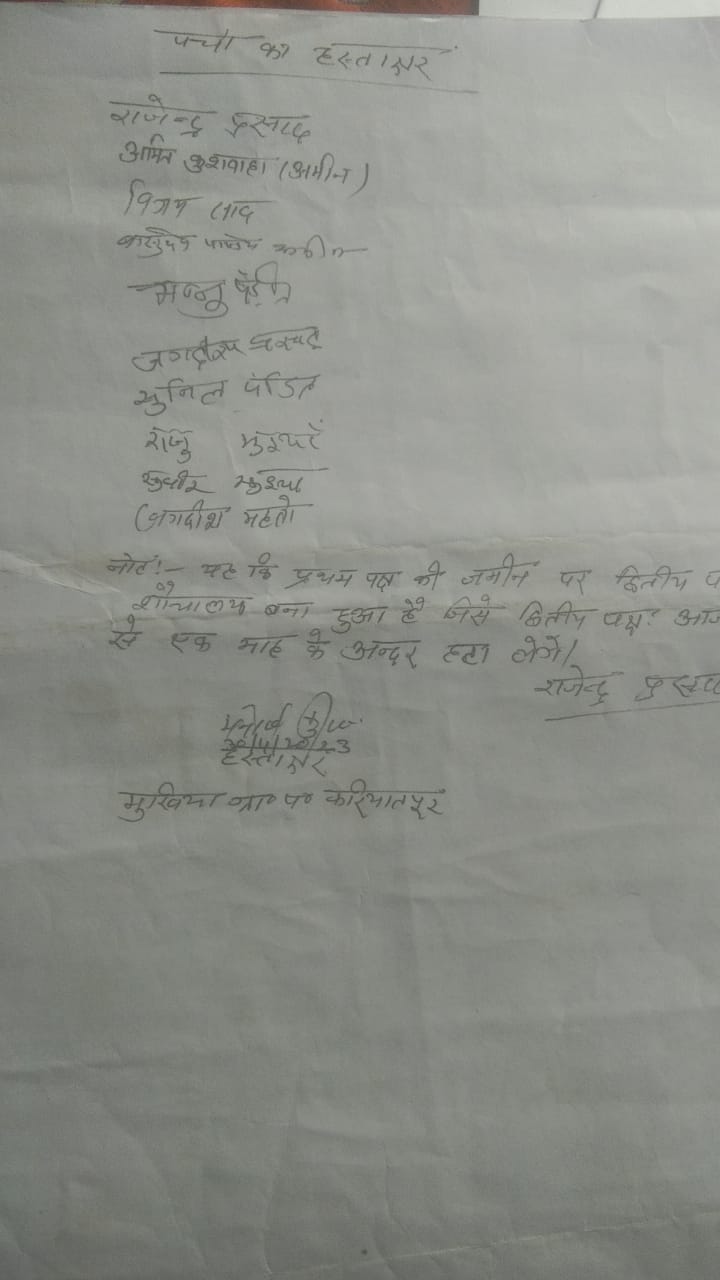 पंचो का हस्ताक्षर
राजेन्द्र प्रसाद
अमित कुशवाहा (अमीन)
विजय साव
वासुदेव पाण्डेय अमीन
मन्नु पंडित
जगदीश प्रसाद
सुनिल पंडित
राजु भुइयाँ
सुधीर भुइया
जगदीश महतो
नोट:- यह कि प्रथम पक्ष की जमीन पर द्वितीय
शौचालय बना हुआ है जिसे द्वितीय पक्ष आज
से एक माह के अन्दर हटा लेगें।
राजेन्द्र प्रसाद
हस्ताक्षर
मुखिया ग्रा० पं० करियातपुर